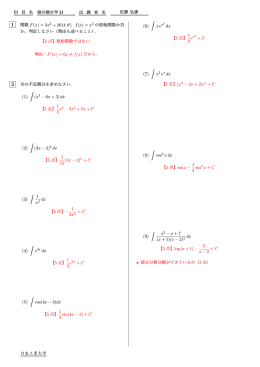 科 目 名 微分積分学 II 出 題 者 名 佐藤 弘康
1 関数 F(x) = 3x² + 2014 が, f(x) = x³ の原始関数か否
か, 判定しなさい（理由も述べること）.
【5 点】原始関数ではない.
理由：F′(x) = 6x ≠ f(x) だから.
2 次の不定積分を求めなさい.
(1) ∫ (x² − 6x + 5) dx
【5 点】1/3 x³ − 3x² + 5x + C
(2) ∫ (3x − 2)⁴ dx
【5 点】1/15 (3x − 2)⁵ + C
(3) ∫ 1/x³ dx
【5 点】− 1/2x² + C
(4) ∫ e²ˣ dx
【5 点】1/2 e²ˣ + C
(5) ∫ cos(4x − 3)dx
【5 点】1/4 sin(4x − 3) + C
日本工業大学
(6) ∫ x e^{x²} dx
【5 点】1/2 e^{x²} + C
(7) ∫ x² eˣ dx
【5 点】(x² − 2x + 2)eˣ + C
(8) ∫ cos³ x dx
【5 点】sin x − 1/3 sin³ x + C
(9) ∫ x² − x + 7 / (x + 1)(x − 2)² dx
【5 点】log |x + 1| − 3/x − 2 + C
• 部分分数分解ができているか【3 点】